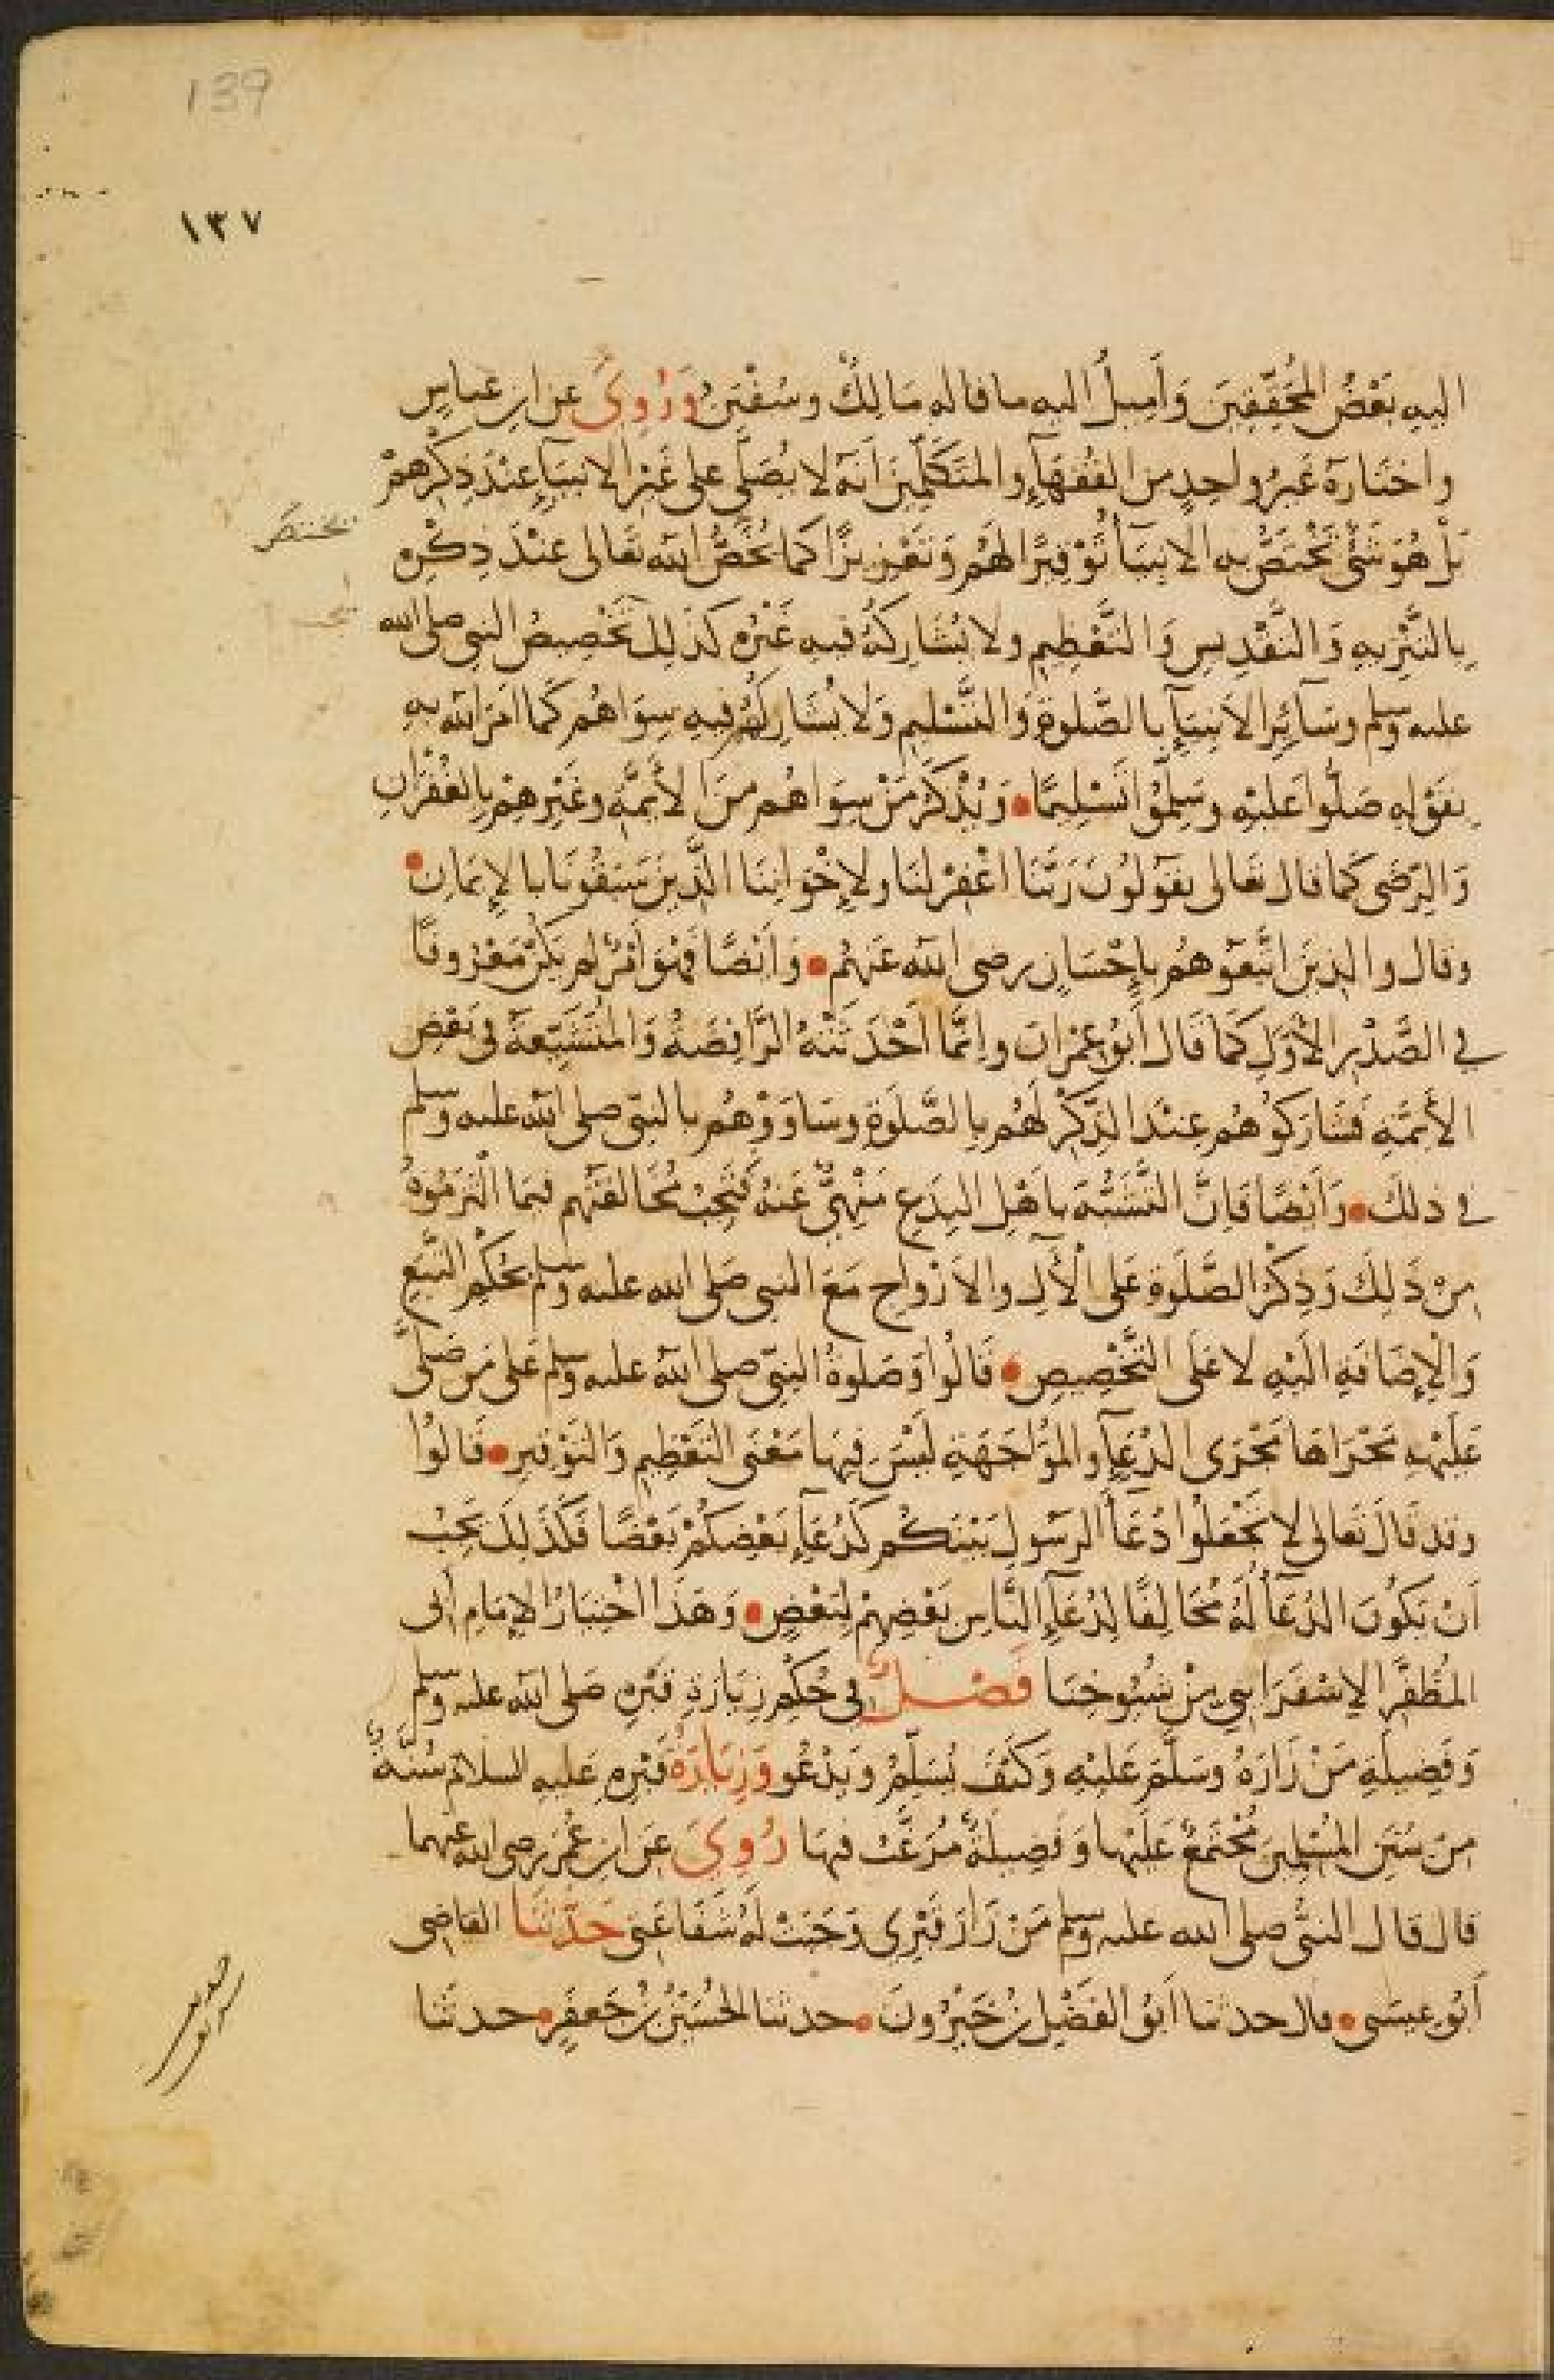 139
١٣٧
اليه بَعْضُ المُحَقِّقِينَ وَأمِيلُ اليه ما قاله مَالِكٌ وسُفْيَنُ وَرُوِىَ عن ابن عباسٍ
واختَارَهُ غَيرُ واحِدٍ من الفُقَهَآءِ والمتَكَلِّمِينَ اَنَّهُ لا يُصَلَّى على غَيْرِ الانبيَآءِ عِنْدَ ذِكْرِهِمْ
بَلْ هُوَ شَىْءٌ تَخْتَصُّ به الانبيَآءُ تَوْقِيرًا لهُمْ وَتَعْزِيزًا كما يُخَصُّ الله تعالى عنْدَ ذِكْرِهِ
يختص
بِالتَّنْزِيهِ وَالتَّقْدِيسِ وَالتَّعْظِيمِ ولا يُشَارِكُهُ فيه غَيْرُهُ كذَلِكَ تَخْصِيصُ النبي صلى الله
عليه وسلم وسَآئِرِ الانبيَآءِ بالصَّلوةِ وَالتَّسْلِيمِ وَلا يُشَارِكُهُمْ فيه سِوَاهُم كَما امَرَ الله به
بقَوْلِهِ صَلُّوا عَليْهِ وسَلِّمُوا تَسْلِيمًا • وَيُذْكَرُ مَنْ سِوَاهُم منَ الأئِمَّةِ وغَيْرِهِمْ بالغُفْرَانِ
وَالرِّضَى كَما قال تَعالى يقولُونَ رَبَّنَا اغْفِرْ لنَا ولإخْوَانِنَا الَّذِينَ سَبَقُونَا بالإيمَانِ •
وقال والذِينَ اتَّبَعُوهُم بإحْسَانٍ رضى الله عَنهُم • وَاَيْضًا فَهُوَ اَمْرٌ لم يَكُنْ مَعْرُوفًا
في الصَّدْرِ الأوَّلِ كَمَا قَالَ أبُو عِمْرَانَ وإنَّما اَحْدَثَتْهُ الرَّافِضَةُ وَالمُتَشَيِّعَةُ في بَعْضِ
الأئِمَّةِ فَشَارَكُوهُم عِنْدَ الذِّكْرِ لَهُم بِالصَّلَوةِ وسَاوَوْهُم بالنبىّ صلى الله عليه وسلم
في ذلك • وَأيْضًا فَإنَّ التَّشَبُّهَ بأهْلِ البِدَعِ مَنْهِىٌّ عَنْهُ فَتَجِبُ مُخَالَفَتُهُم فيمَا الْتَزَمُوهُ
مِنْ ذَلِكَ وَذِكْرُ الصَّلَوةِ عَلى الْآلِ والازْوَاجِ مَعَ النبي صَلى الله عليه وسلم بحُكْمِ التَّبَعِ
وَالإضَافَةِ الَيْهِ لا عَلى التَّخْصِيصِ • قَالُوا وَصَلوةُ النبىّ صلى الله عليه وسلم عَلى مَن صَلَّى
عَلَيْهِ مَجْرَاهَا مَجْرَى الدُعَآءِ والمُوَاجَهَةِ لَيْسَ فِيهَا مَعْنَى التَعْظِيمِ وَالتَوْقيرِ • قَالُوا
وقد قَالَ تَعالى لا تَجْعَلُوا دُعَآءَ الرسُولِ بَيْنَكُم كَدُعَآءِ بَعْضِكُمْ بَعْضًا فَكَذَلِكَ يَجِبُ
اَنْ يَكُونَ الدُعَآءُ لَهُ مُخَالِفًا لِدُعَآءِ النَّاسِ بَعْضِهِمْ لِبَعْضٍ • وَهَذَا اخْتِيَارُ الإمَامِ أبى
المُظَفَّرِ الإسْفَرَاينِي مِنْ شُيُوخِنَا فَصْلٌ فِي حُكْمِ زِيَارَةِ قَبْرِهِ صَلى الله عليه وسلم
وَفَضِيلَةِ مَنْ زَارَهُ وسَلَّمَ عَلَيْهِ وَكَيْفَ يُسَلِّمُ وَيَدْعُو وَزِيَارَةُ قَبْرِهِ عَليهِ السلامُ سُنَّةٌ
مِن سُنَنِ المُسْلِمِينَ مُجْتَمَعٌ عَلَيْها وَفَضِيلَةٌ مُرَغَّبٌ فيهَا رُوِىَ عَن ابنِ عُمَرَ رضى الله عنهما
قال قال النبىُّ صلى الله عليه وسلم مَنْ زَارَ قَبْرِى وَجَبَتْ لَهُ شَفَاعَتى حَدَّثَنَا القاضِى
أبُو عِيسَى • قال حدثنا أبُو الفَضْلِ بْنُ خَيْرُونَ • حدثنا الحُسَيْنُ بْنُ جَعفَرٍ • حدثنا